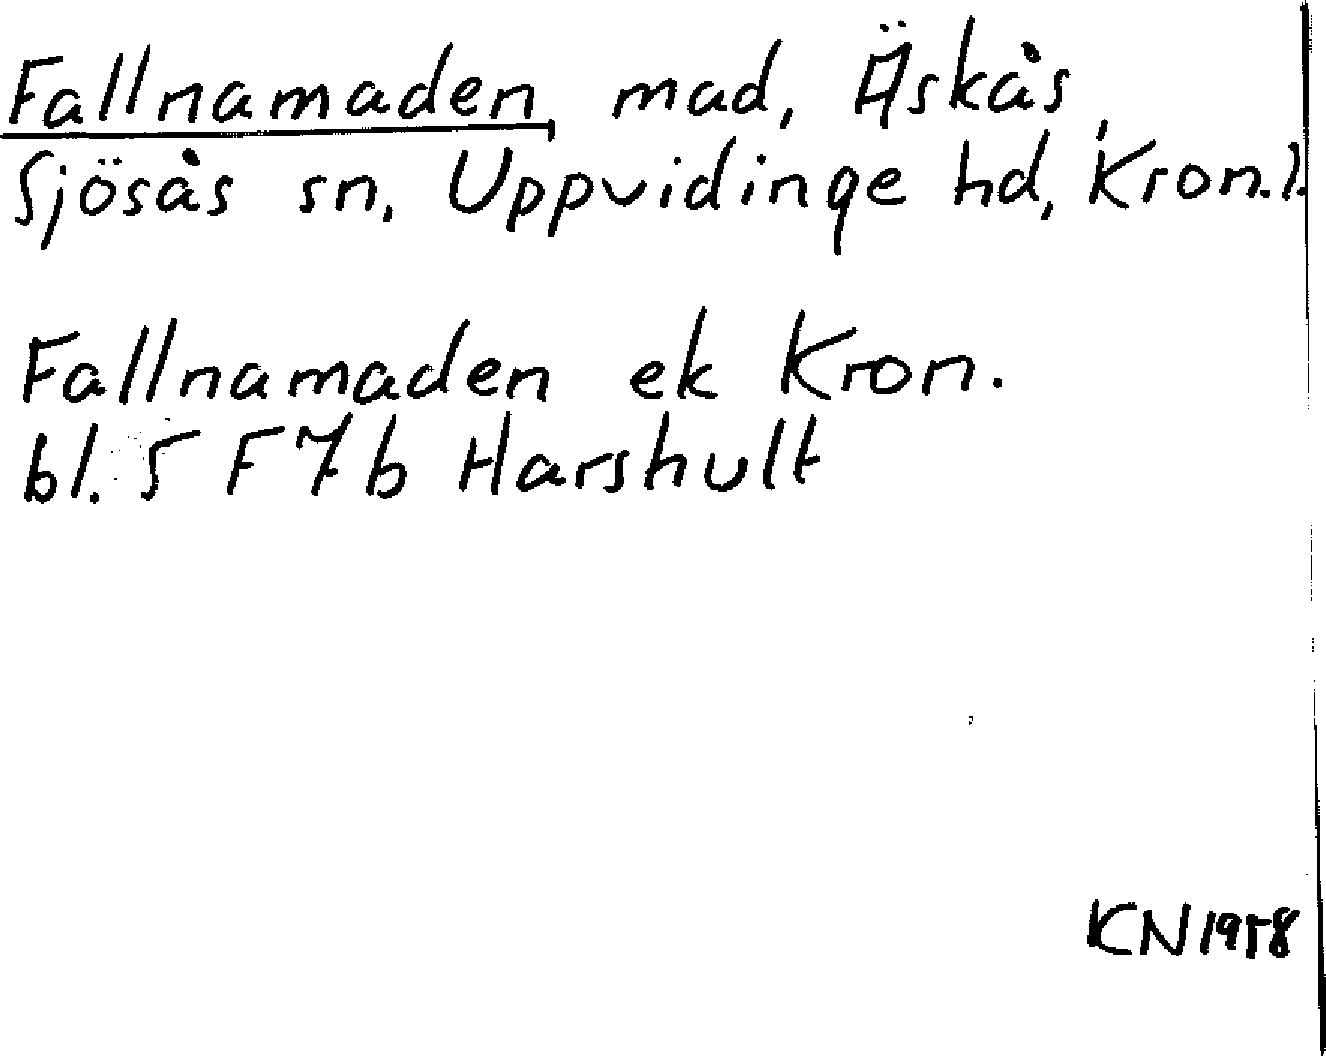 Fallnamaden, mad, Äskås,
Sjösås sn, Uppvidinge hd, Kron.l.
Fallnamaden ek Kron.
bl. 5 F 7 b Harshult
KN 1958